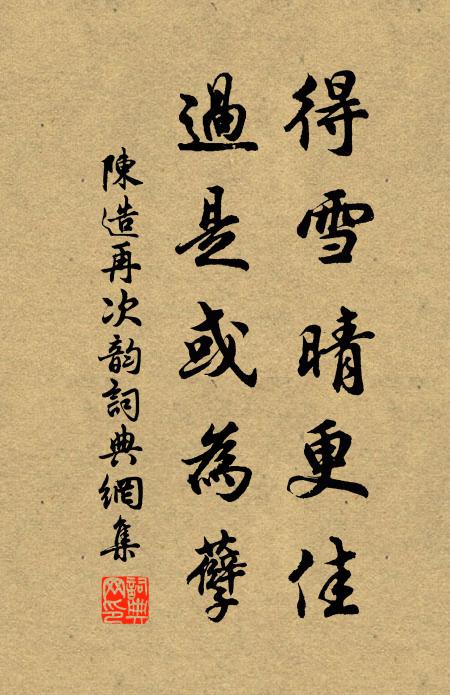 得雪晴更佳
過是或為孽
陳造再次韵詞典網集
詞典網印